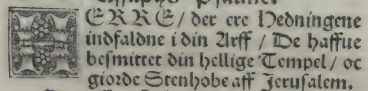 HERRE / der ere Hedningene
indfaldne i din Arff / De haffue
besmittet din hellige Tempel / oc
giorde Stenhobe aff Jerusalem.